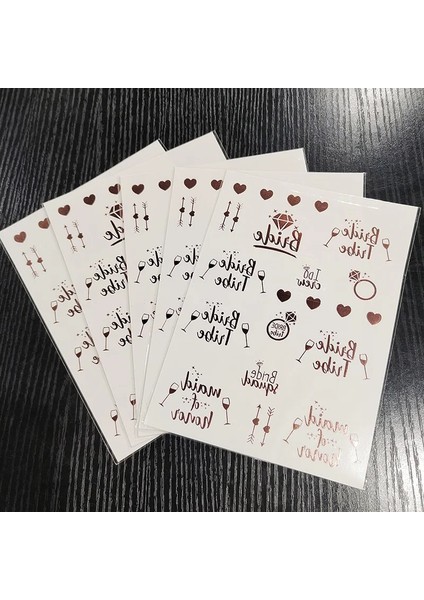 Bride
Bride
Tribe
Bride
Tribe
I Do
crew
Bride
Tribe
BRIDE
tribe
Bride
Tribe
maid
of
honor
Bride
squad
maid
of
honor
Bride
Bride
Tribe
Bride
Tribe
Bride
Tribe